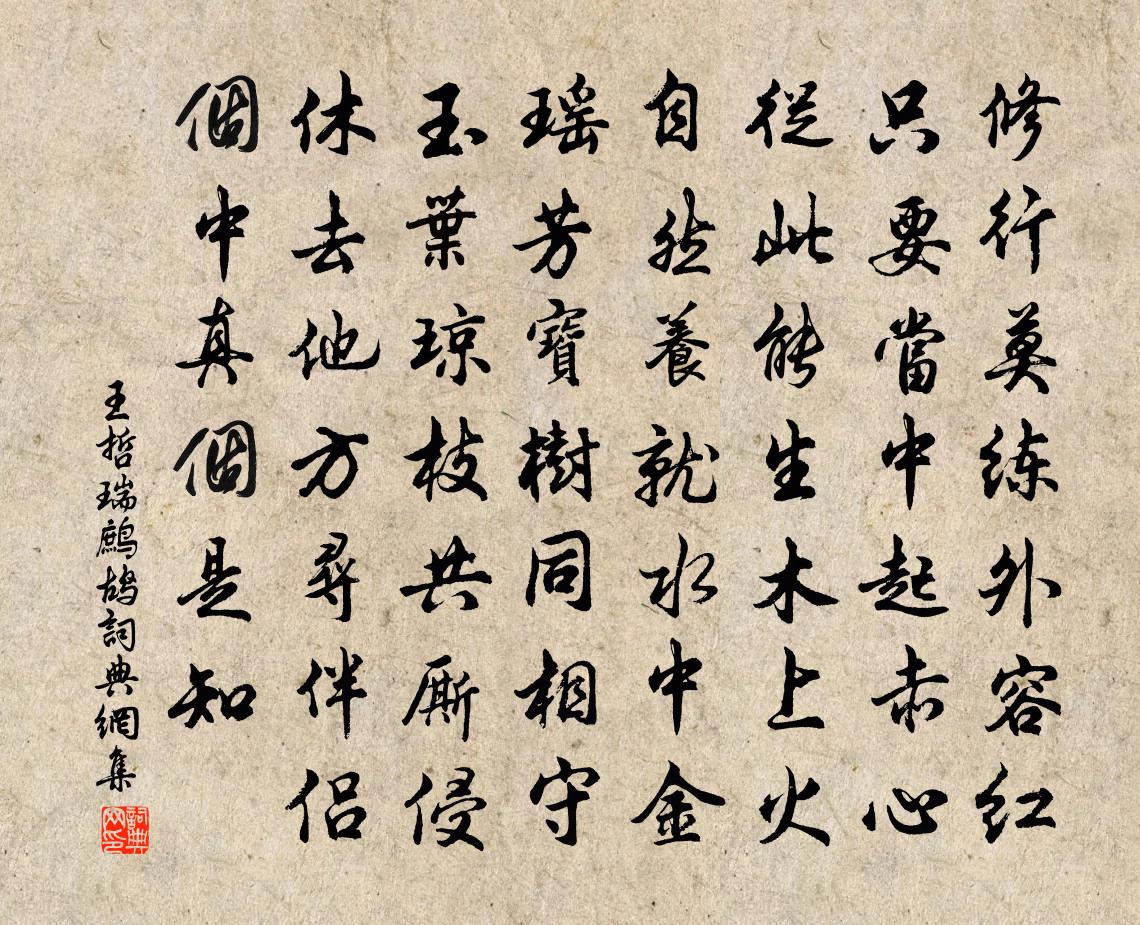 修行莫練外容红
只要當中起赤心
從此能生木上火
自然養就水中金
瑶芳寶樹同相守
玉葉瓊枝共厮侵
休去他方尋伴侣
個中真個是知
王哲瑞鷓鴣詞典網集
詞典网印